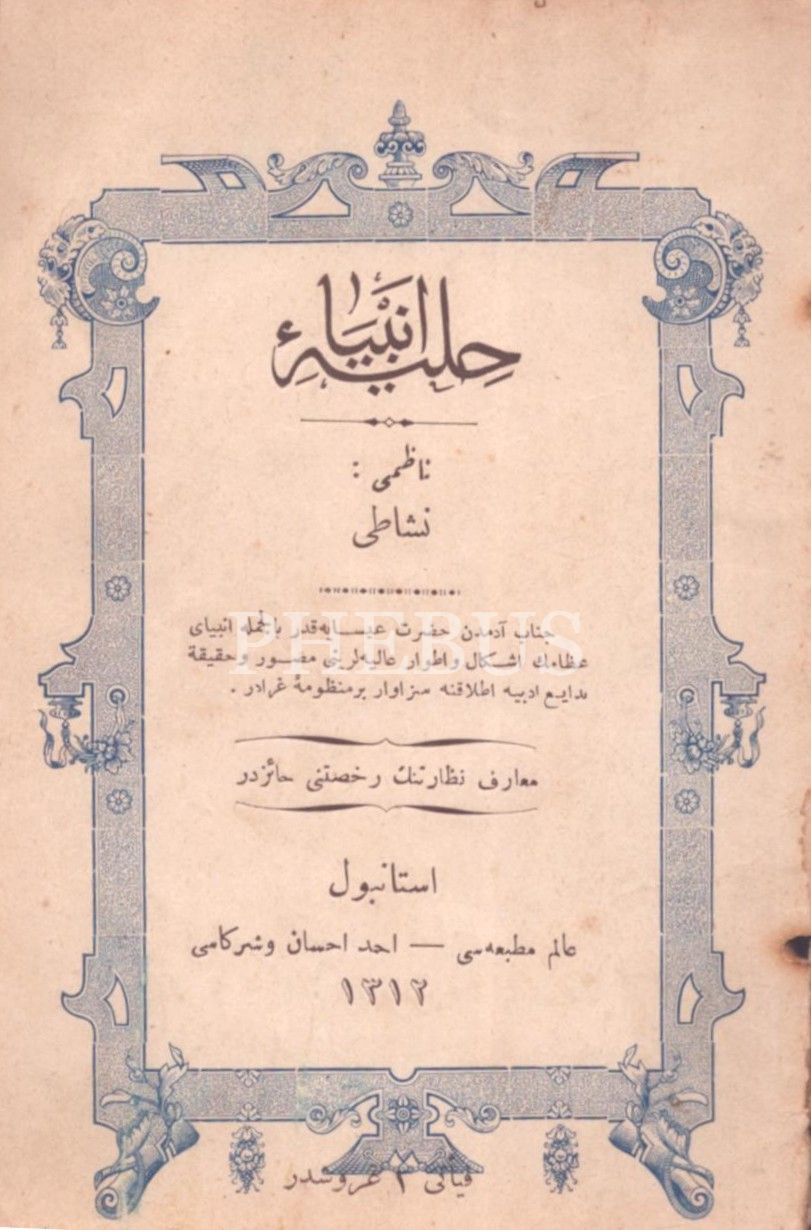 حلیۀ انبیاء
ناظمی :
نشاطی
جناب آدمدن حضرت عیسایه قدر بالجمله انبیای
عظامك اشكال و اطوار عالیه لرینی مصور و حقیقة
بدایع ادبیه اطلاقنه سزاوار بر منظومۀ غرادر .
PHEBUS
معارف نظارتنك رخصتنی حائزدر
استانبول
عالم مطبعه سی — احمد احسان و شركاسی
١٣١٢
فیأتی ٢ غروشدر